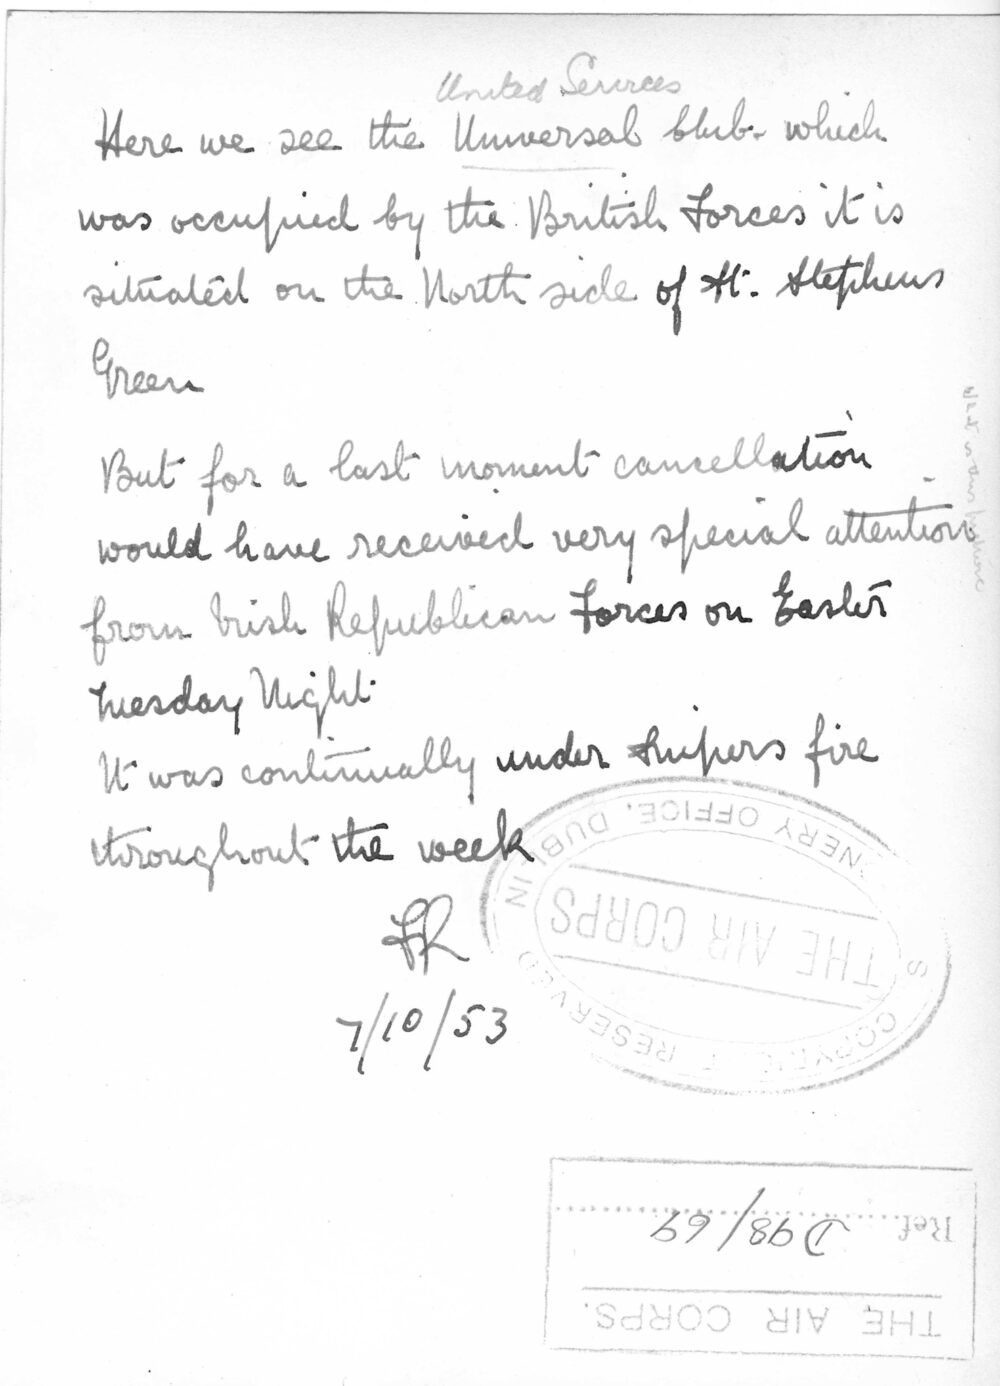 United Services
Here we see the Universal Club. which
was occupied by the British Forces it is
situated on the North side of St. Stephens
Green
But for a last moment cancellation
would have received very special attention
from Irish Republican Forces on Easter
Tuesday Night.
It was continually under Snipers fire
throughout the week
FR
7/10/53
NERY OFFICE, DUBLIN
THE AIR CORPS
COPYRIGHT RESERVED
Ref. D98/69
THE AIR CORPS.